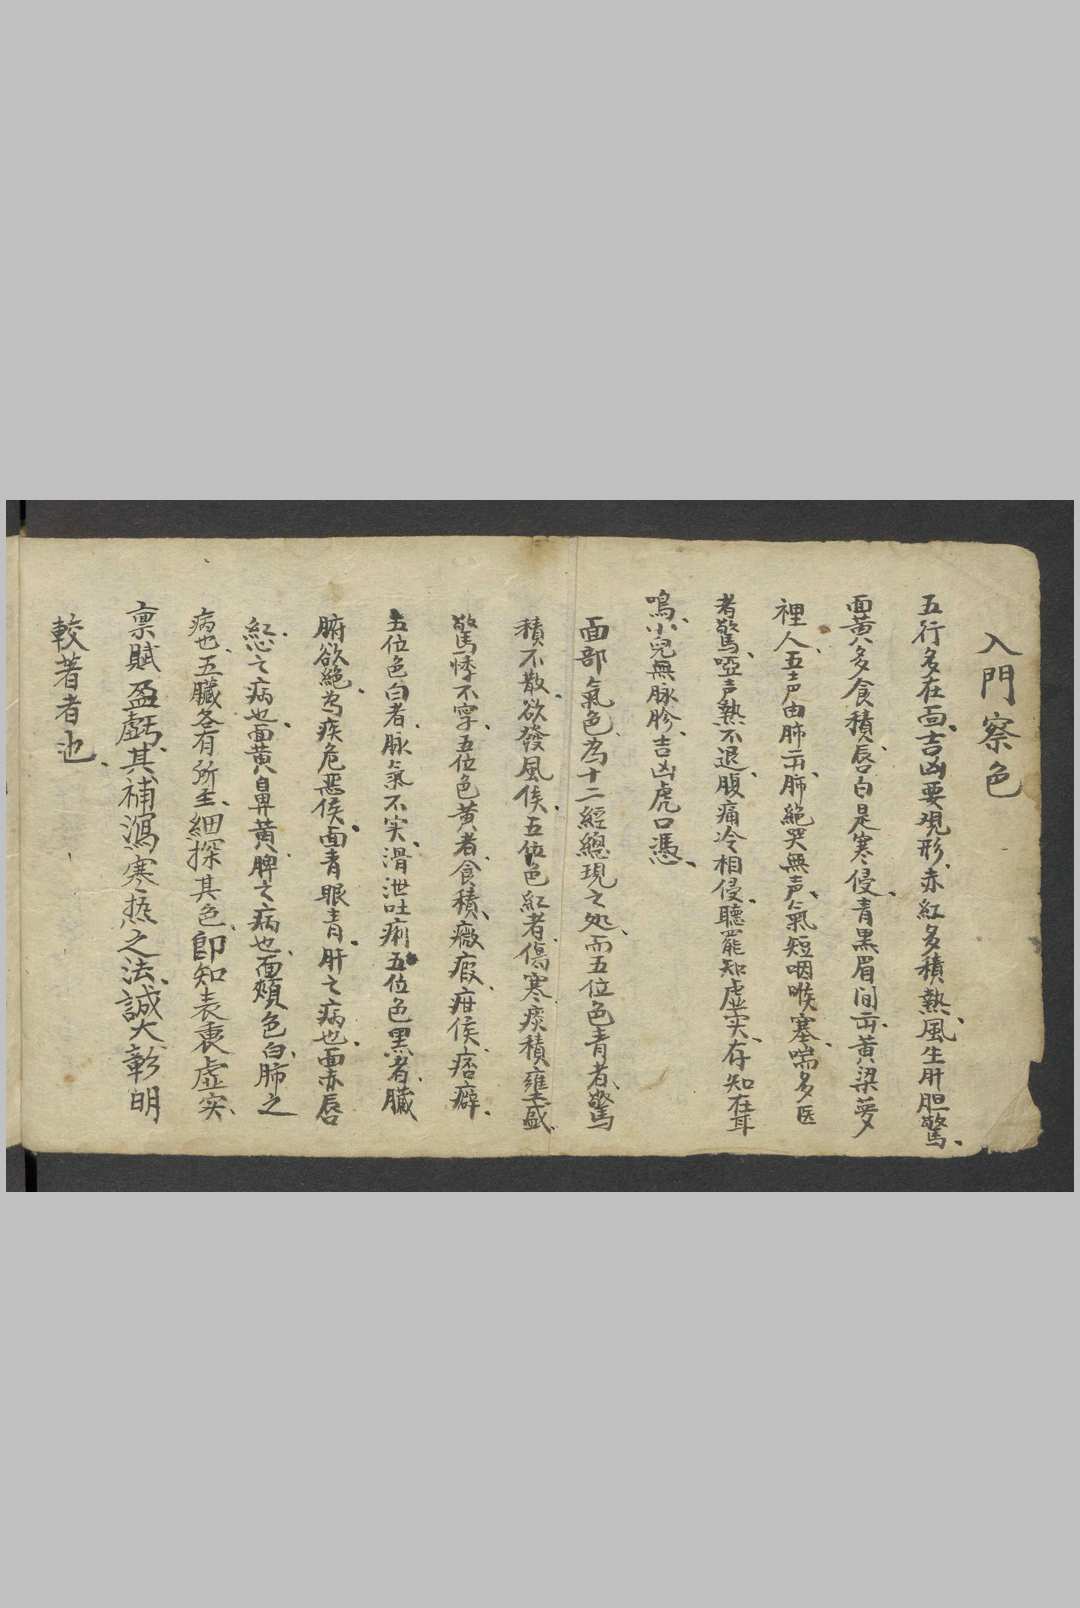 入門察色
五行多在面吉凶要現形赤紅多積熱風生肝胆驚
面黄多食積唇白是寒侵青黒眉间両黄梁夢
裡人五声由肺両肺絶哭無声氣短咽喉塞喘多医
者驚啞声熱不退腹痛冷相侵聽罷知虚实存知在耳
鳴小兒無脉胗吉凶虎口憑
面部氣色為十二經總現之処而五位色青者驚
積不散欲發風侯五位色紅者傷寒痰積壅盛
驚悸不寜五位色黄者食積癥瘕疳侯痞癖
五位色白者脉氣不实滑泄吐痢五位色黒者臟
腑欲絶為疾危恶侯面青眼青肝之病也面赤唇
紅心之病也面黄鼻黄脾之病也面頰色白肺之
病也五臟各有所主細探其色即知表裏虚实
禀賦盈虧其補瀉寒热之法誠大彰明
較著者也